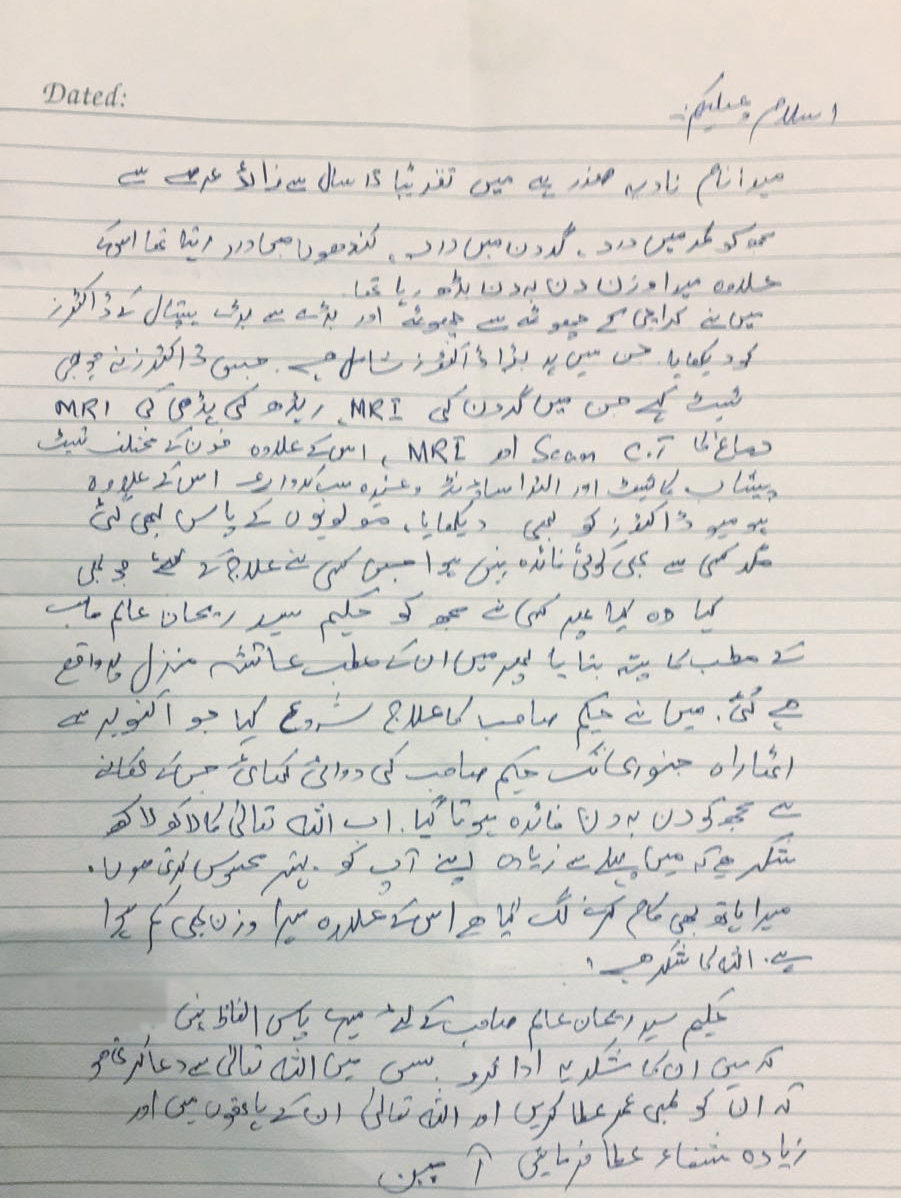 Dated:
اسلام وعلیکم:۔
میرا نام نادیہ صفدر ہے میں تقریباً 15 سال سے زائد عرصے سے
مجھ کو کمر میں درد، گردن میں درد، کندھوں میں درد رہتا تھا اس کے
علاوہ میرا وزن دن بہ دن بڑھ رہا تھا۔
میں نے کراچی کے چھوٹے سے چھوٹے اور بڑے سے بڑے ہسپتال کے ڈاکٹرز
کو دیکھایا۔ جن میں ہر بڑا ڈاکٹرز شامل ہے۔ جس ڈاکٹرز نے جو بھی
ٹیسٹ کہے جن میں گردن کی MRI، ریڑھ کی ہڈی کی MRI
دماغ کا C.T Scan اور MRI، اس کے علاوہ خون کے مختلف ٹیسٹ
پیشاب کا ٹیسٹ اور الٹرا ساؤنڈ وغیرہ سب کروائے اس کے علاوہ
ہومیو ڈاکٹرز کو بھی دیکھایا، مولویوں کے پاس بھی گئی
مگر کسی سے بھی کوئی فائدہ نہیں ہوا جس کسی نے علاج کے لئے جو بھی
کہا وہ کیا پھر کسی نے مجھ کو حکیم سید ریحان عالم صاحب
کے مطب کا پتہ بتایا پھر میں ان کے مطب عائشہ منزل پہ واقع
ہے گئی۔ میں نے حکیم صاحب کا علاج شروع کیا جو اکتوبر سے
اٹھاراہ جنوری تک حکیم صاحب کی دوائی کھائی جس کے کھانے
سے مجھ کو دن بہ دن فائدہ ہوتا گیا۔ اب اللہ تعالیٰ کا لاکھ لاکھ
شکر ہے کہ میں پہلے سے زیادہ اپنے آپ کو بہتر محسوس کرتی ہوں۔
میرا ہاتھ بھی کام کرنے لگ گیا ہے اس کے علاوہ میرا وزن بھی کم ہوا
ہے۔ اللہ کا شکر ہے۔
حکیم سید ریحان عالم صاحب کے لئے میرے پاس الفاظ نہیں
کہ میں ان کا شکریہ ادا کرو۔ بس میں اللہ تعالیٰ سے دعا کرتی ہو
کہ ان کو لمبی عمر عطا کریں اور اللہ تعالیٰ ان کے ہاتھوں میں اور
زیادہ شفاء عطا فرمائیں آمین